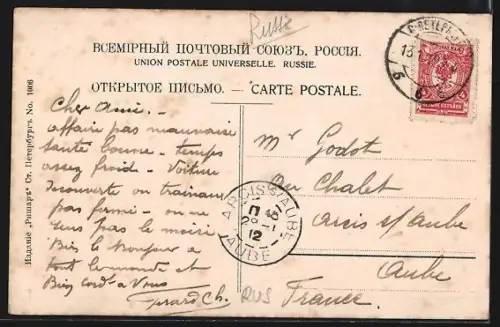 Russie
ВСЕМІРНЫЙ ПОЧТОВЫЙ СОЮЗЪ. РОССІЯ.
UNION POSTALE UNIVERSELLE. RUSSIE.
ОТКРЫТОЕ ПИСЬМО. — CARTE POSTALE.
Cher Ami.-
affaire pas mauvaise
Santé bonne - temps
assez froid - Voiture
découverte ou traineau
pas fermé - on ne
sens pas le
Bien le bonjour à
tout le monde et
Bien cord. à Vous
Gerard Ch.
Mr Godot
au Chalet
Arcis s/Aube
Aube
France
ARCIS S/AUBE
12
AUBE
13
RUS
Изданіе „Ришаръ“ Ст. Петербургъ No. 1006